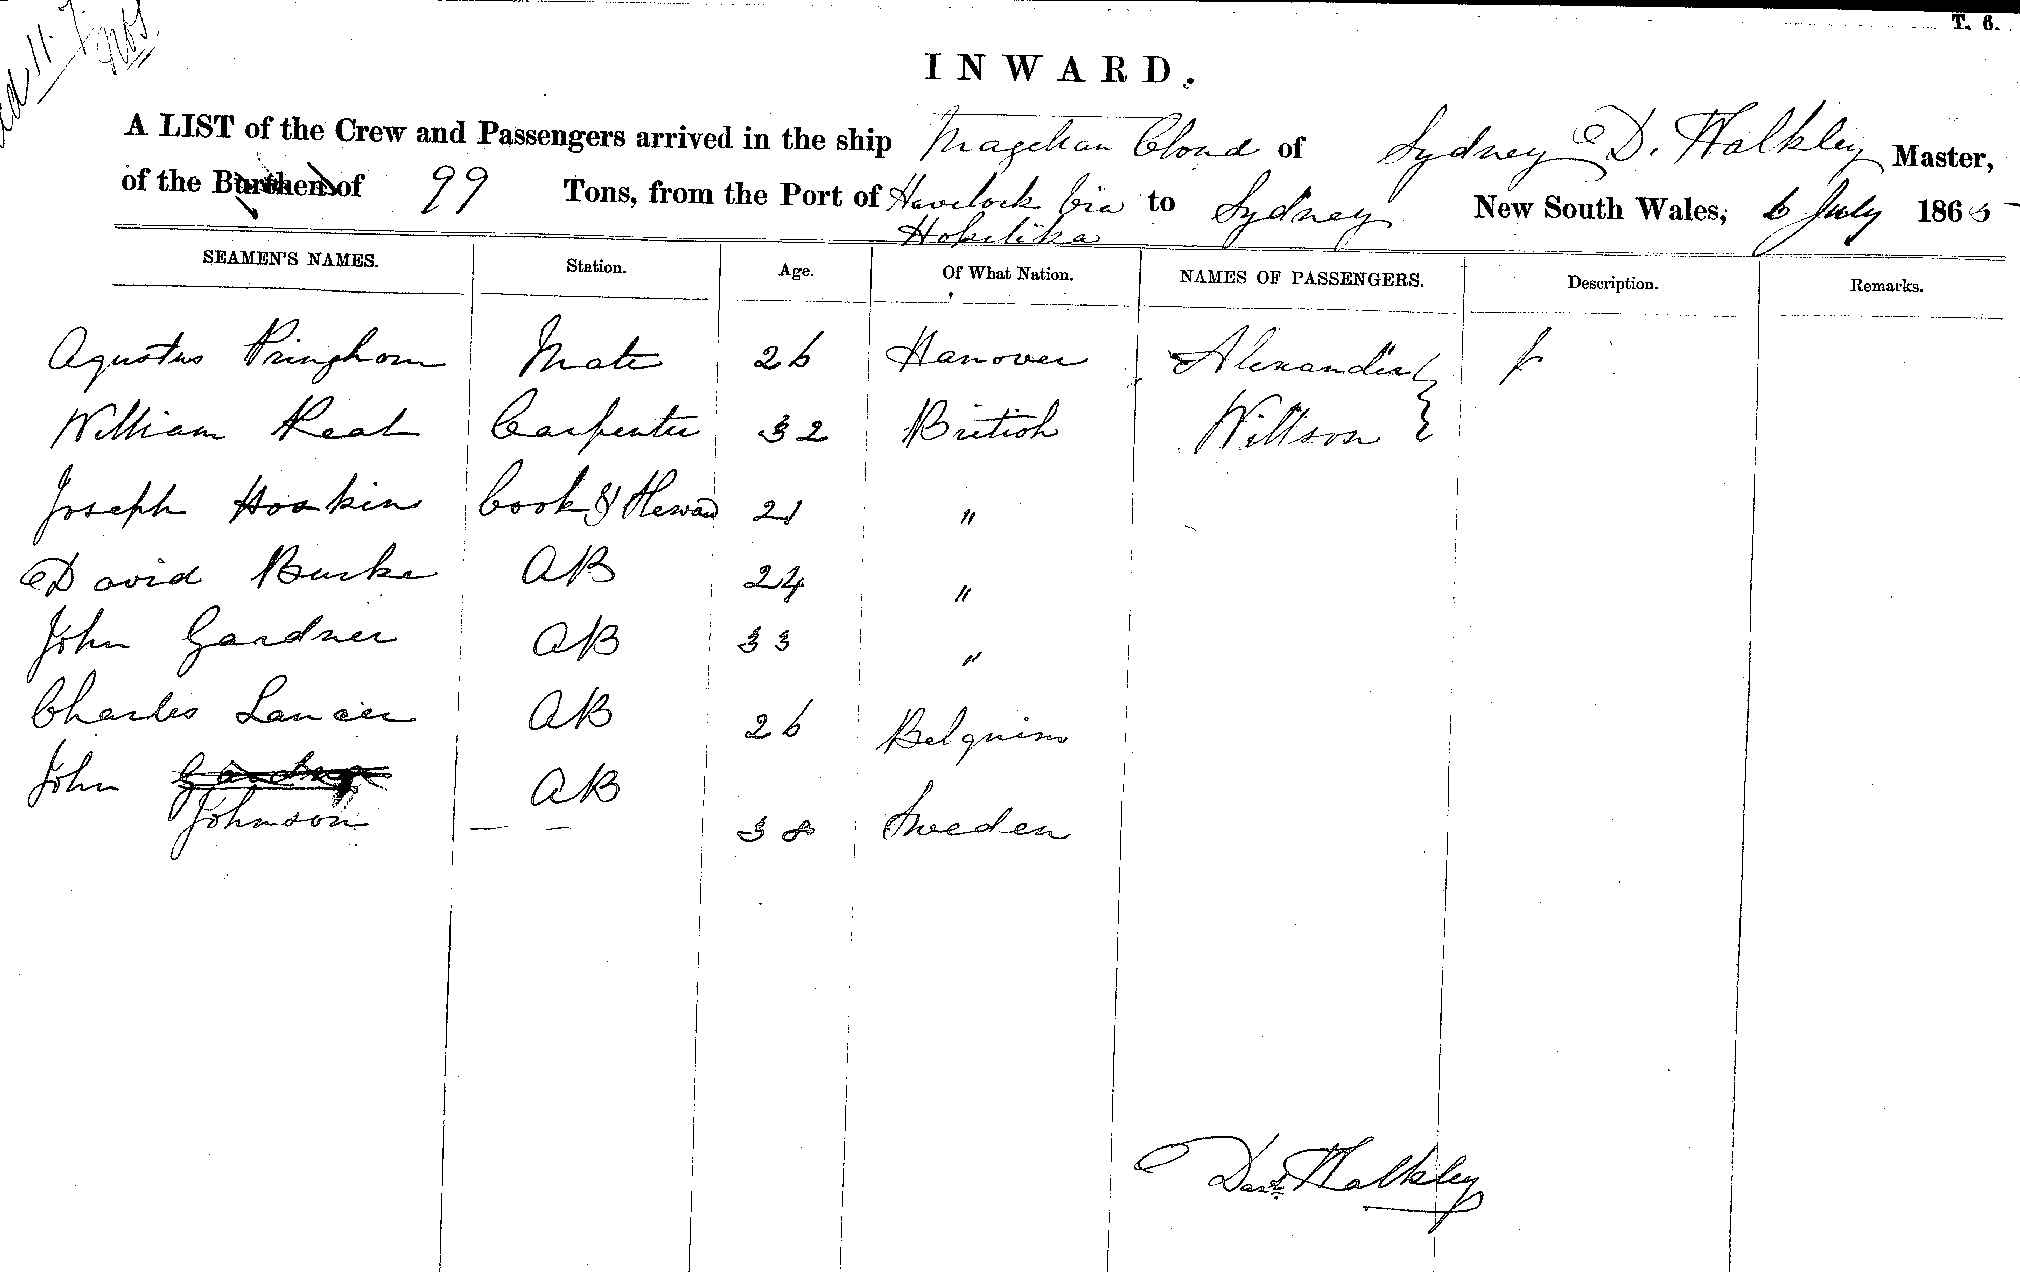 T. 6.
INWARD.
A LIST of the Crew and Passengers arrived in the ship Magellan Cloud of Sydney D. Halkley Master,
of the Burthen of 99 Tons, from the Port of Havelock Via to Sydney New South Wales, 6 July 1865
Hokitika
SEAMEN'S NAMES. Station. Age. Of What Nation. NAMES OF PASSENGERS. Description. Remarks.
Agustus Pringhorn Mate 26 Hanover Alexander
William Neat Carpenter 32 British Willson
Joseph Hoskin Cook & Steward 21 "
David Burke AB 24 "
John Gardner AB 33 "
Charles Lancier AB 26 Belguim
John Gardner AB
Johnson 38 Sweden
Davd. Halkley